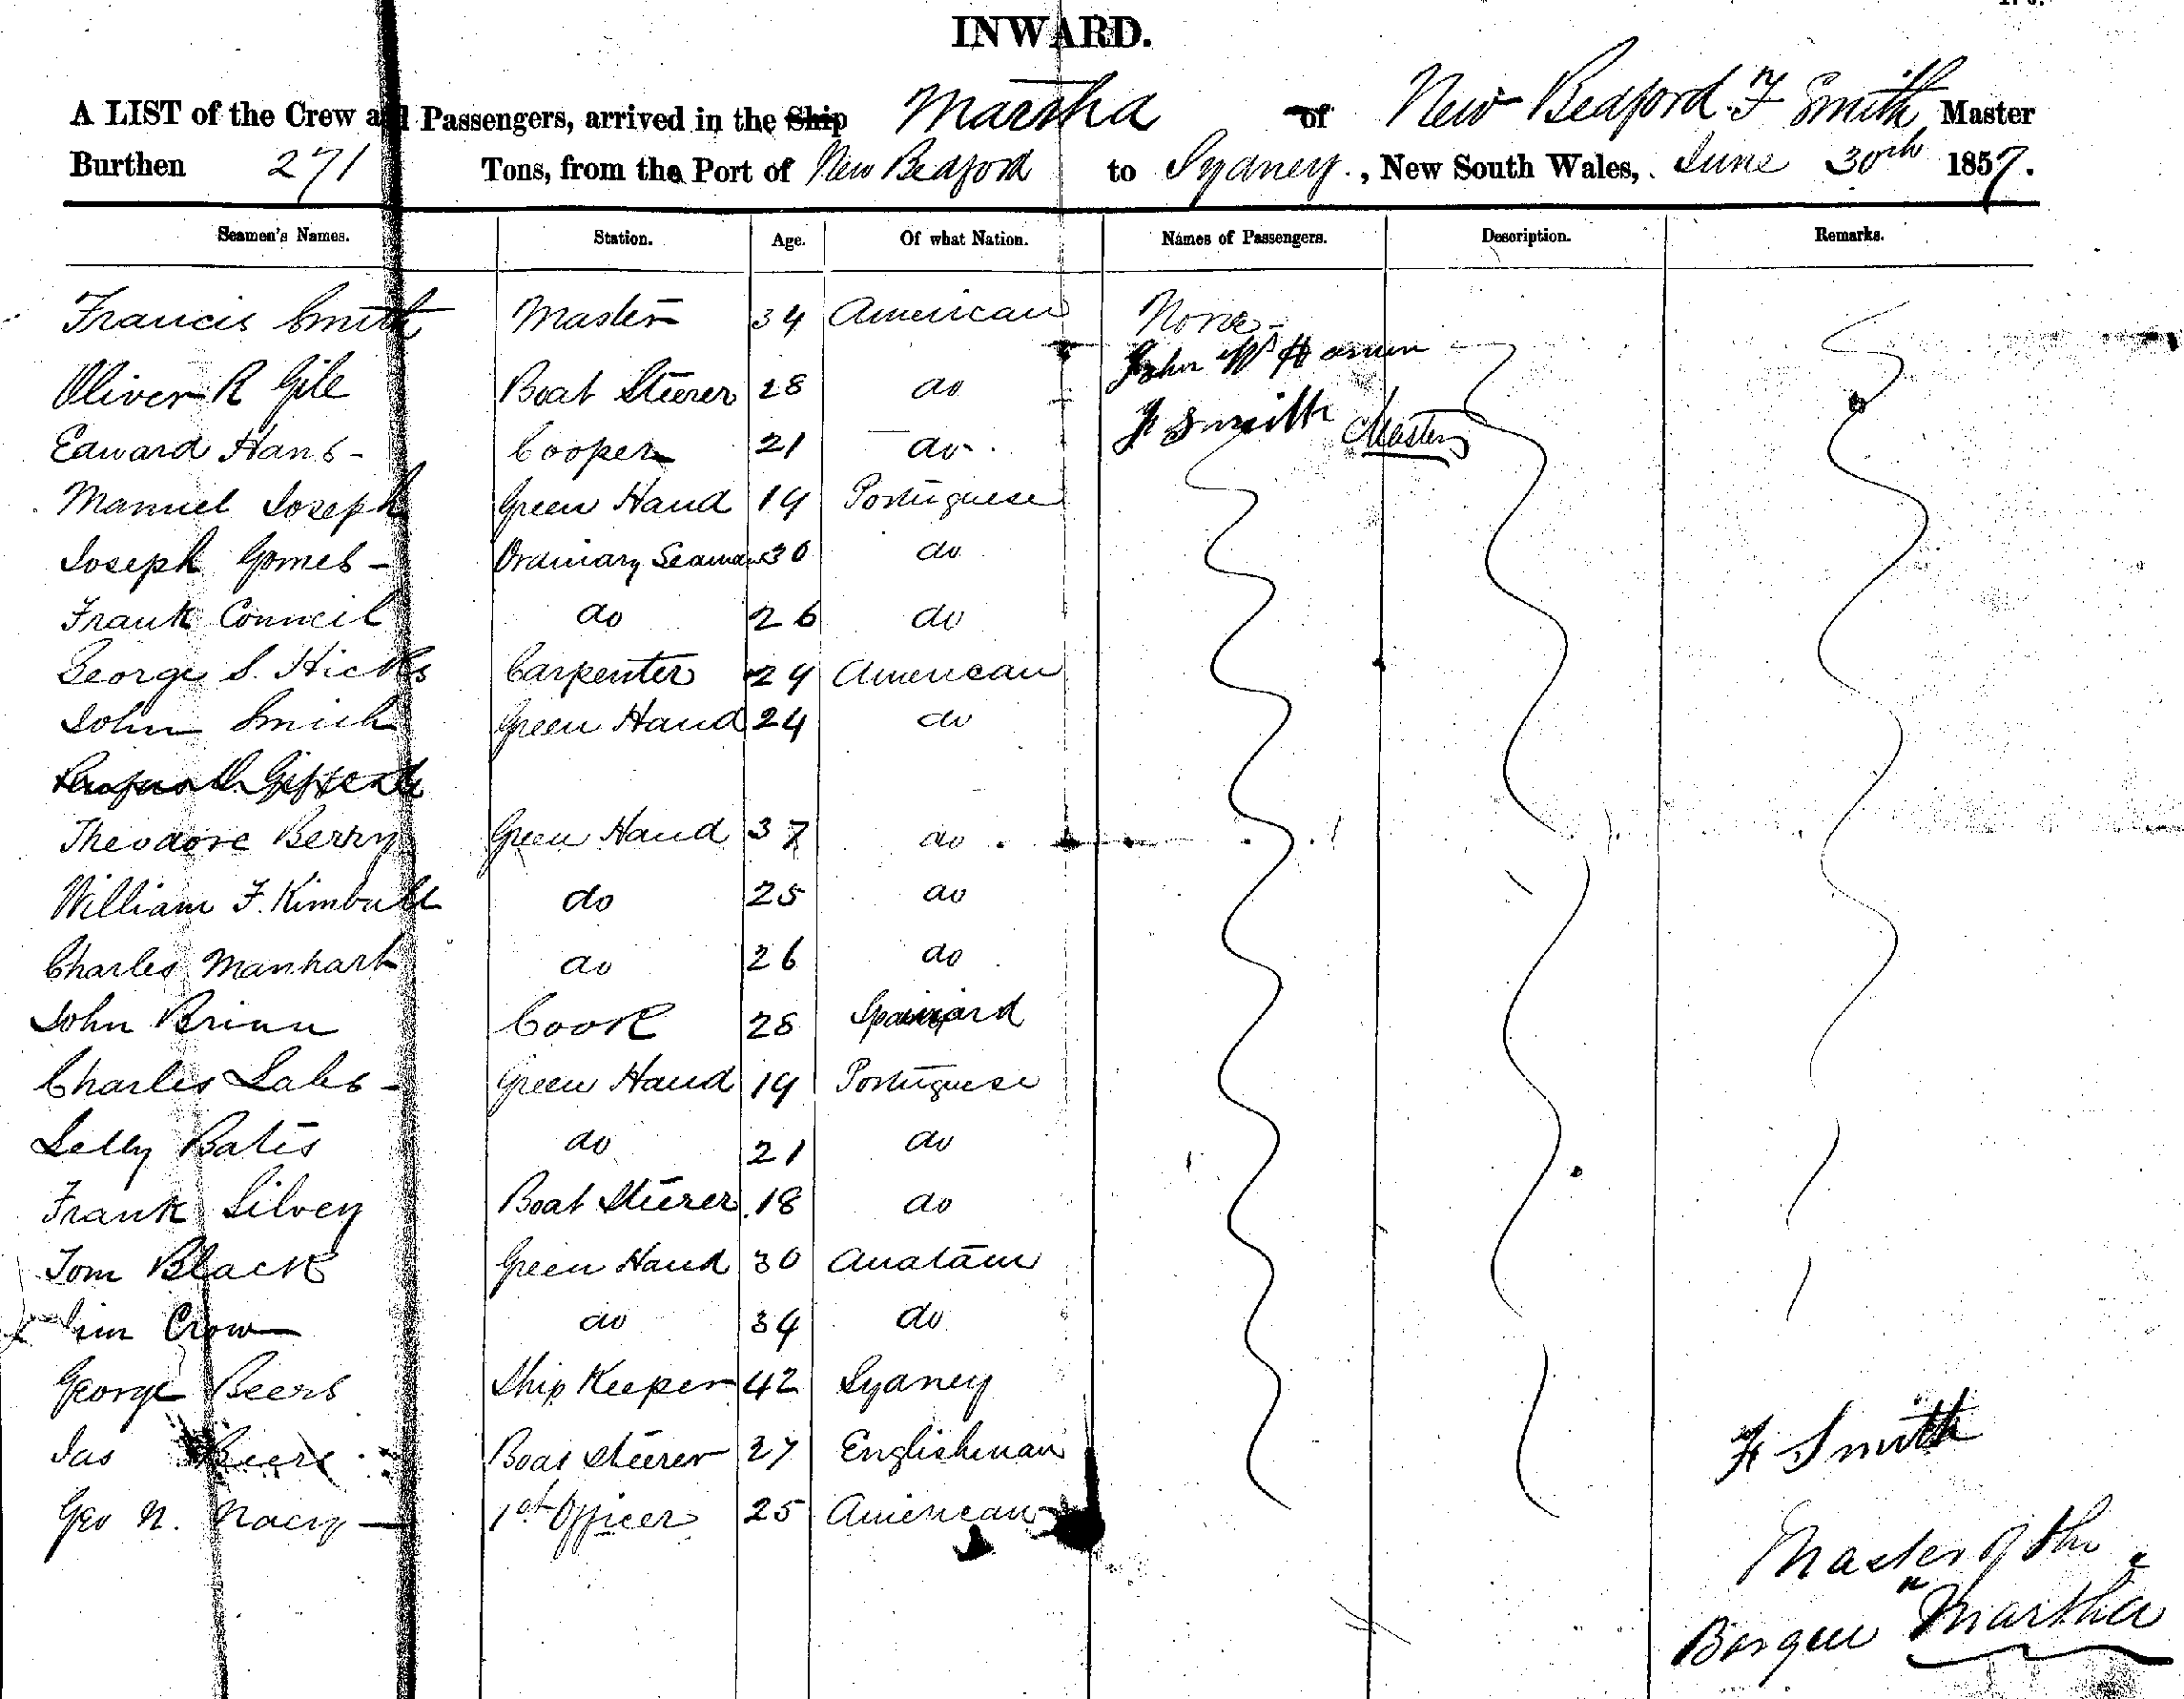 INWARD.
A LIST of the Crew and Passengers, arrived in the Ship Martha of New Bedford F Smith Master
Burthen 271 Tons, from the Port of New Bedford to Sydney, New South Wales, June 30th 1857.
Seamen's Names. Station. Age. Of what Nation. Names of Passengers. Description. Remarks.
Francis Smith Master 34 American None
John
Oliver R Gile Boat Steerer 28 do
F Smith Master
Edward Hans Cooper 21 do
Manuel Joseph Green Hand 19 Portuguese
Joseph Gomes Ordinary Seaman 30 do
Frank Council do 26 do
George S. Hicks Carpenter 29 American
John Smith Green Hand 24 do
Theodore Berry Green Hand 37 do
William F. Kimball do 25 do
Charles Manhart do 26 do
John Brinn Cook 28 Spaniard
Charles Green Hand 19 Portuguese
Bates do 21 do
Frank Silvey Boat Steerer 18 do
Tom Black Green Hand 30 Anatam
Jim Crow do 34 do
George Beers Ship Keeper 42 Sydney
Jas Beers Boat Steerer 27 Englishman
Geo N. 1st Officer 25 American
F Smith
Master of the
Barque "Martha"